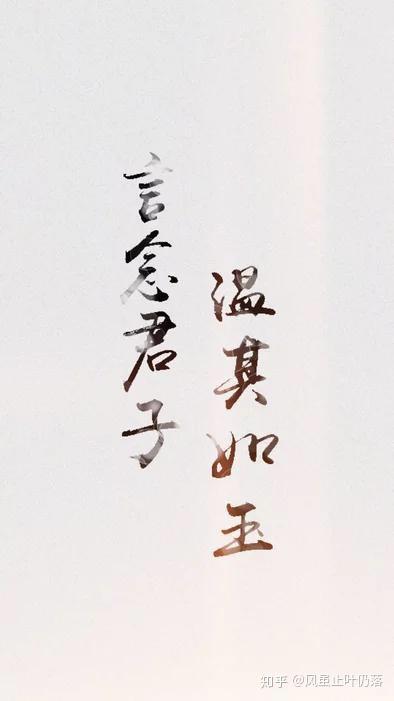 言念君子
温其如玉
知乎 @风虽止叶仍落